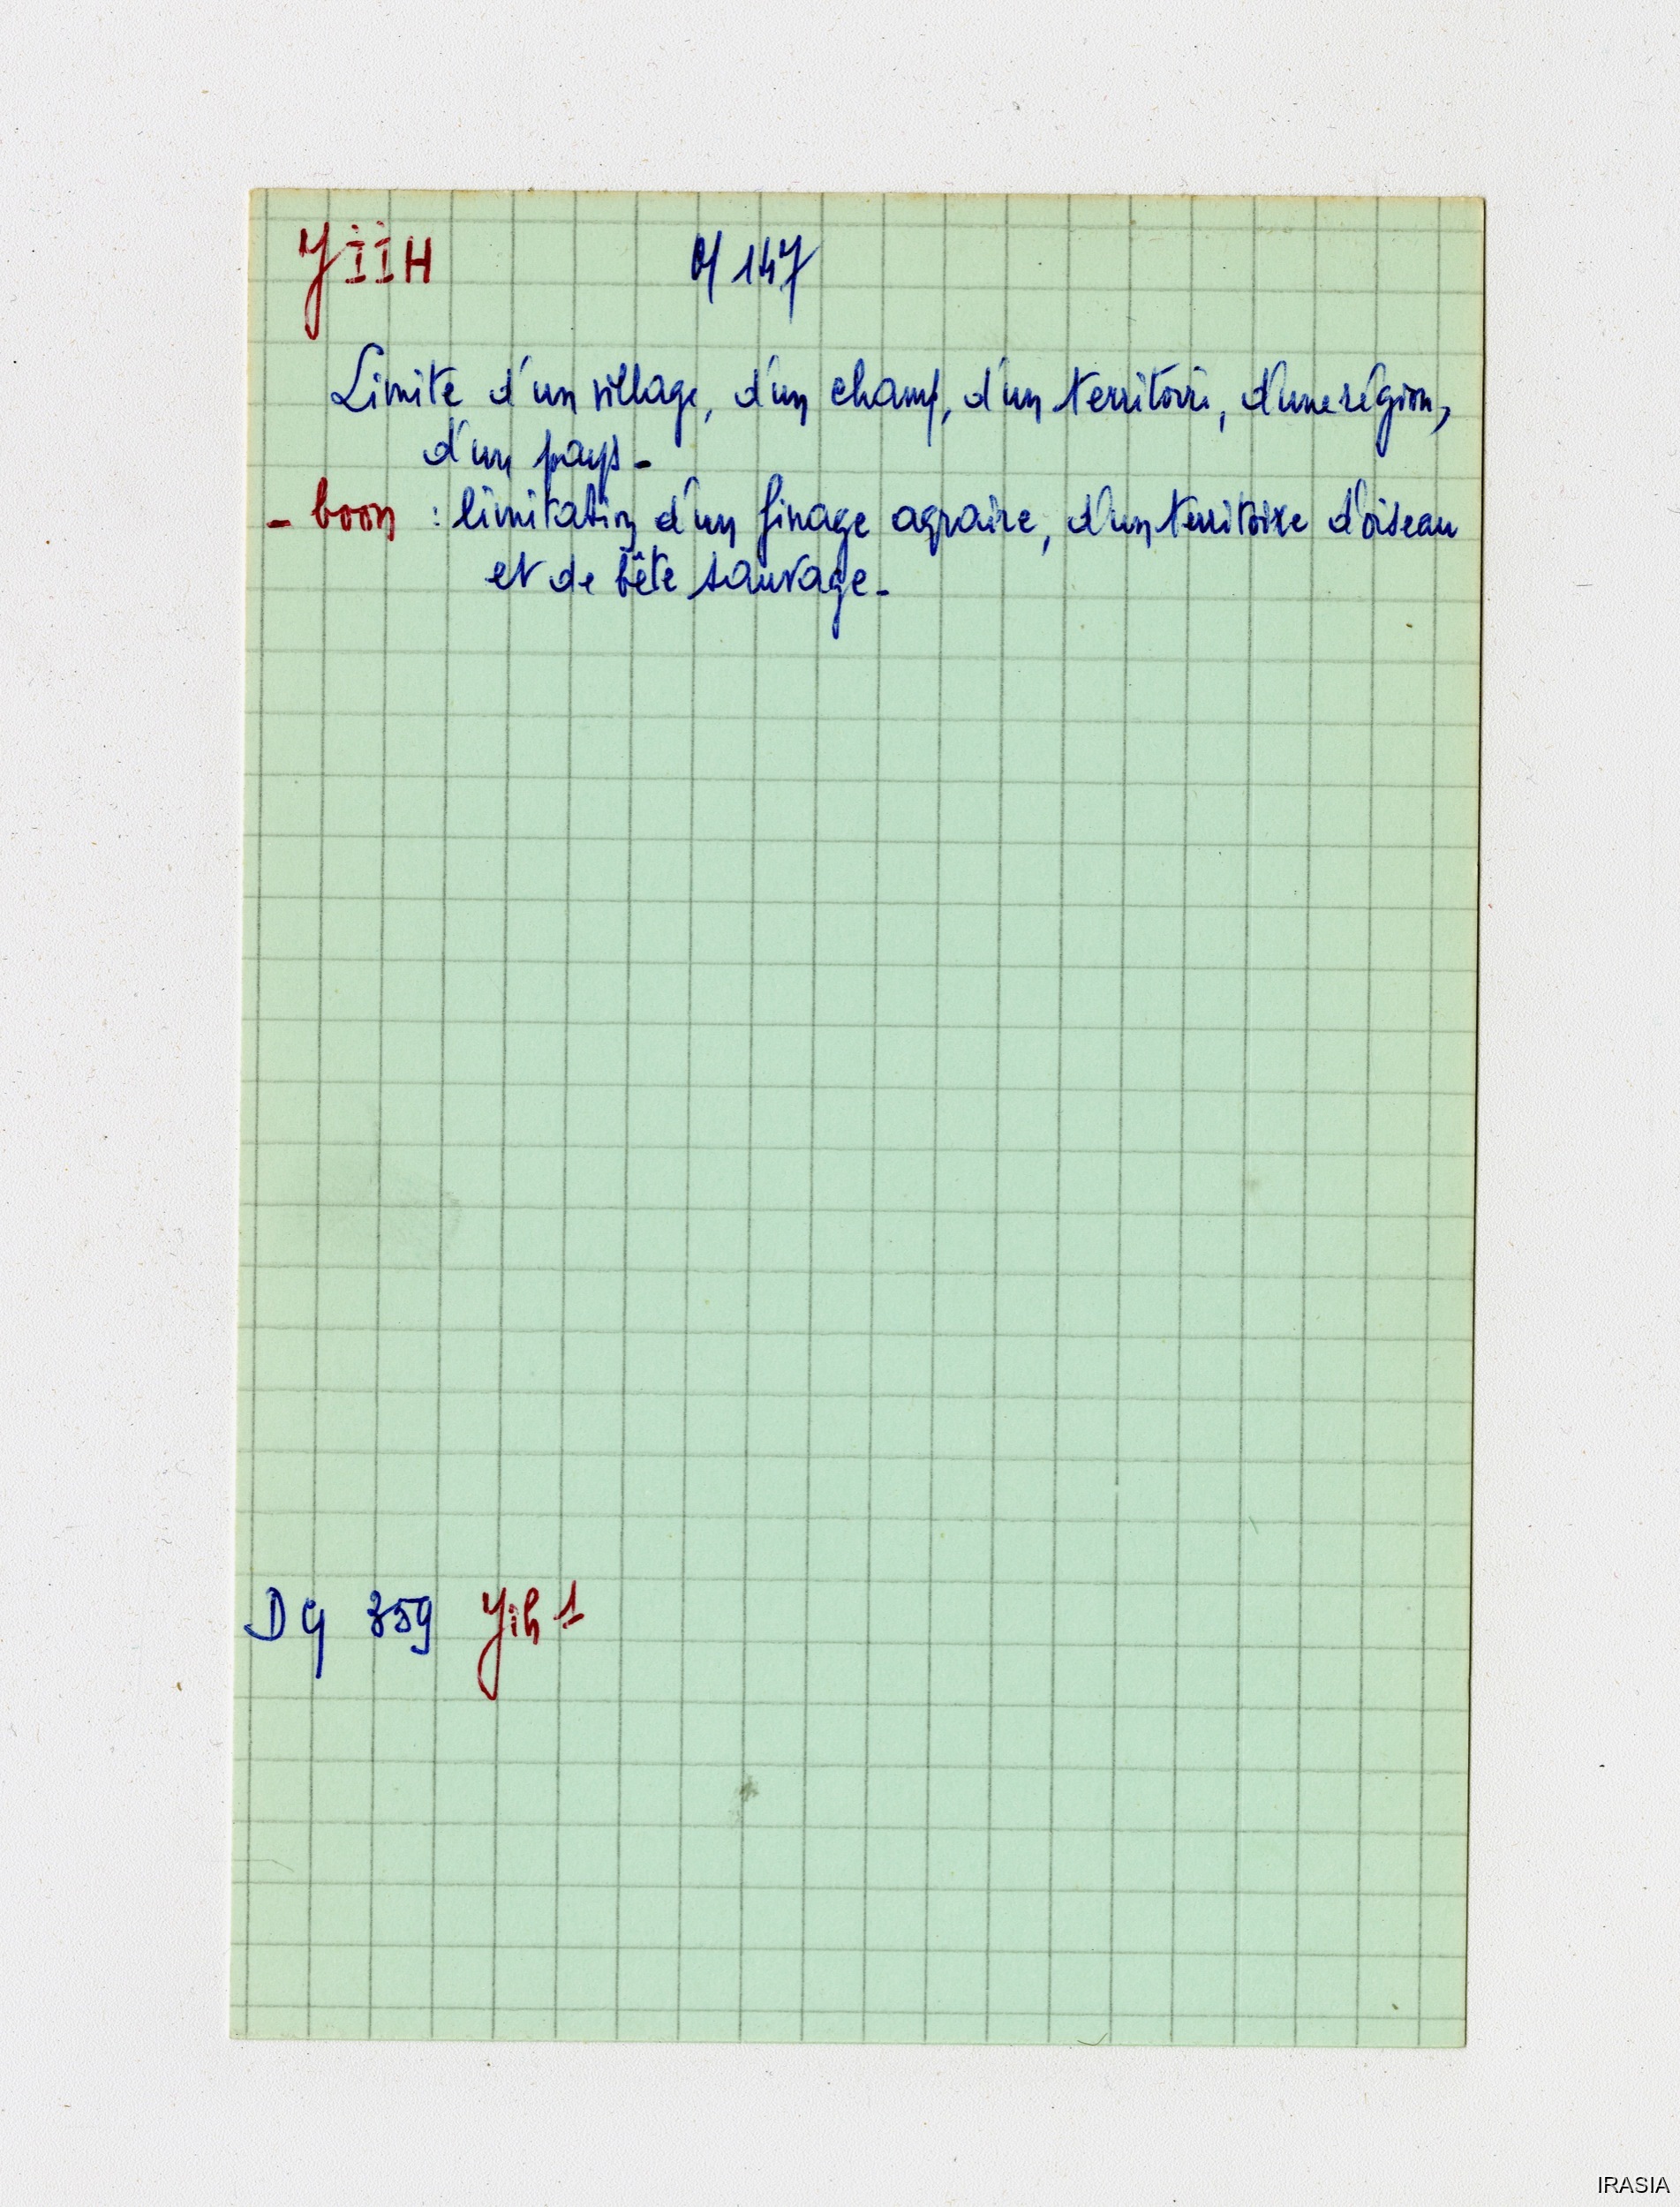 YIIH 147
Limite d'un village, d'un champ, d'un territoire, d'une région,
d'un pays -
- boon : limitation d'un finage agraire, d'un territoire d'oiseau
et de bête sauvage -
Dg 359 Yih 1
IRASIA